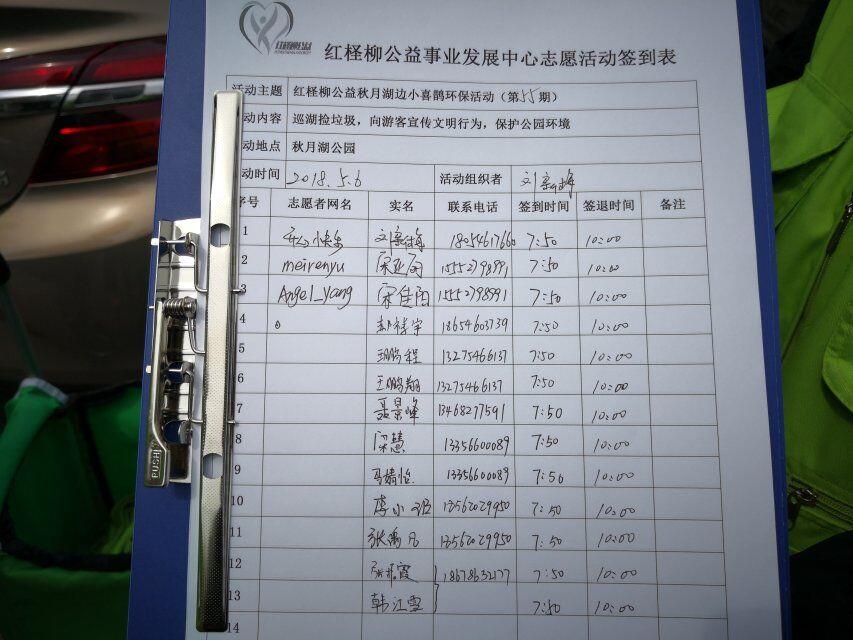 红柽柳公益
红柽柳公益事业发展中心志愿活动签到表
活动主题 红柽柳公益秋月湖边小喜鹊环保活动（第55期）
动内容 巡湖捡垃圾，向游客宣传文明行为，保护公园环境
动地点 秋月湖公园
动时间 2018.5.6 活动组织者
序号 志愿者网名 实名 联系电话 签到时间 签退时间 备注
1 18054617660 7:50 10:00
2 meirenyu 宋亚丽 15552798991 7:50 10:00
3 Angel_yang 宋佳阳 15552798991 7:50 10:00
4 18654603739 7:50 10:00
5 王鹏程 13275466137 7:50 10:00
6 王鹏翔 13275466137 7:50 10:00
7 聂景峰 13468277591 7:50 10:00
8 梁慧 13356600089 7:50 10:00
9 马婧怡 13356600089 7:50 10:00
10 李小班 13562029950 7:50 10:00
11 张禹凡 13562029950 7:50 10:00
12 18678632177 7:50 10:00
13 韩江雪 7:50 10:00
14
PUSH